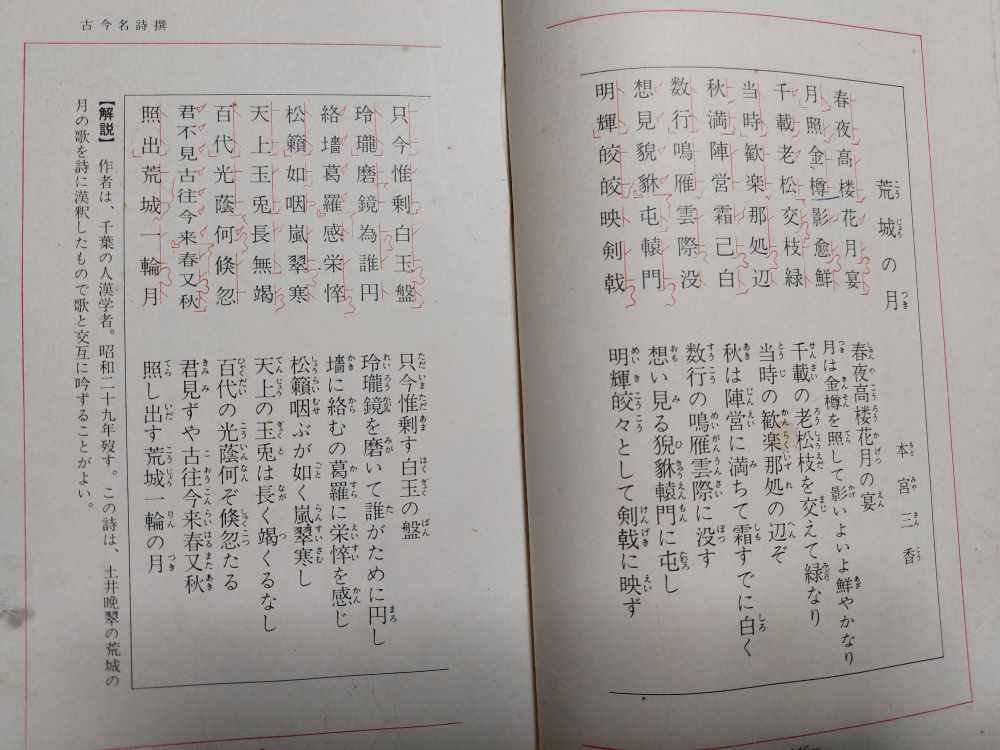 荒城の月
本宮三香
春夜高楼花月宴
月照金樽影愈鮮
千載老松交枝緑
当時歓楽那処辺
秋満陣営霜己白
数行鳴雁雲際没
想見貌貅屯轅門
明輝皎皎映剣戟
春夜高楼花月の宴
月は金樽を照して影いよいよ鮮やかなり
千載の老松枝を交えて緑なり
当時の歓楽那処の辺ぞ
秋は陣営に満ちて霜すでに白く
数行の鳴雁雲際に没す
想い見る猊貅轅門に屯し
明輝皎々として剣戟に映ず
古今名詩撰
只今惟剰白玉盤
玲瓏磨鏡為誰円
絡墻葛羅感栄悴
松籟如咽嵐翠寒
天上玉兎長無竭
百代光蔭何倏忽
君不見古往今来春又秋
照出荒城一輪月
只今惟剰す白玉の盤
玲瓏鏡を磨いて誰がために円し
墻に絡むの葛羅に栄悴を感じ
松籟咽ぶが如く嵐翠寒し
天上の玉兎は長く竭くるなし
百代の光蔭何ぞ倏忽たる
君見ずや古往今来春又秋
照し出す荒城一輪の月
【解説】 作者は、千葉の人漢学者。昭和二十九年歿す。この詩は、土井晩翠の荒城の
月の歌を詩に漢釈したもので歌と交互に吟ずることがよい。